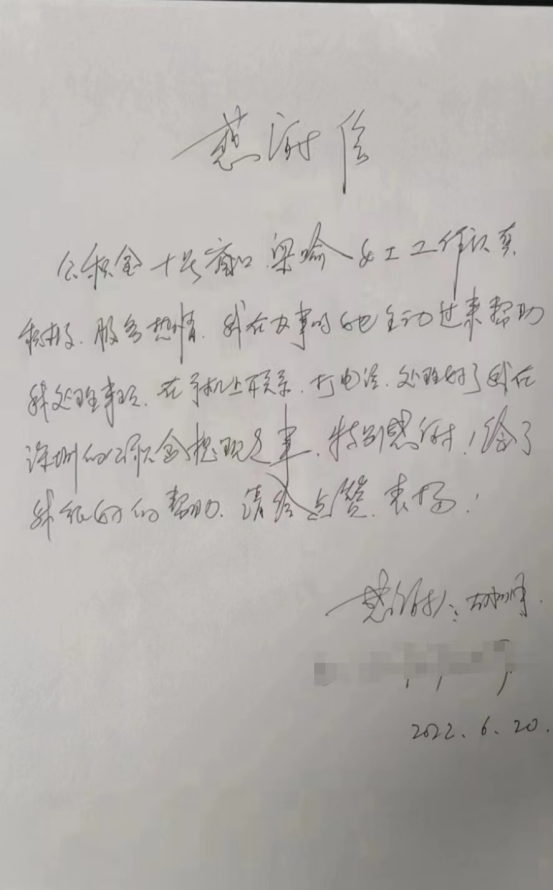 感谢信
公积金十号窗口梁瑜女士工作认真
积极、服务热情、我在办事时她主动过来帮助
我处理事项、在手机上联系、打电话、处理好了我在
深圳的公积金提现之事、特别感谢!给了
我很好的帮助、请给点赞、表扬!
感谢人:
2022.6.20.